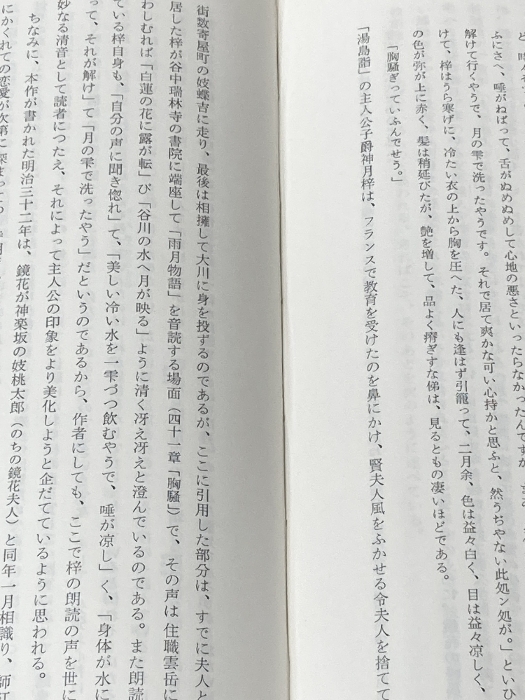 ふにさへ、唾がねばって、舌がぬめぬめして心地の悪さといったらなかったんですが、
解けて行くやうで、月の雫で洗ったやうです。それで居て爽かな可い心持かと思ふと、然うぢやない此処ン処が。」といひ
けて、梓はうら寒げに、冷たい衣の上から胸を圧へた、人にも逢はず引籠って、二月余、色は益々白く、目は益々涼しく、
の色が弥が上に赤く、髪は稍延びたが、艶を増して、品よく搾ぎすな俤は、見るともの凄いほどである。
「胸騒ぎっていふんでせう。」
「湯島詣」の主人公子爵神月梓は、フランスで教育を受けたのを鼻にかけ、賢夫人風をふかせる令夫人を捨てて
街数寄屋町の妓蝶吉に走り、最後は相擁して大川に身を投ずるのであるが、ここに引用した部分は、すでに夫人と
居した梓が谷中瑞林寺の書院に端座して「雨月物語」を音読する場面(四十一章「胸騒」)で、その声は住職雲岳に
わしむれば「白蓮の花に露が転」び「谷川の水へ月が映る」ように清く冴え冴えと澄んでいるのである。また朗読
ている梓自身も、「自分の声に聞き惚れ」て、「美しい冷い水を一雫づつ飲むやうで、唾が涼し」く、「身体が水に
って、それが解け」て「月の雫で洗ったやう」だというのであるから、作者にしても、ここで梓の朗読の声を世に
妙なる清音として読者につたえ、それによって主人公の印象をより美化しようと企だてているように思われる。
ちなみに、本作が書かれた明治三十二年は、鏡花が神楽坂の妓桃太郎(のちの鏡花夫人)と同年一月相識り、師
にかくれての恋愛が次第に深まって